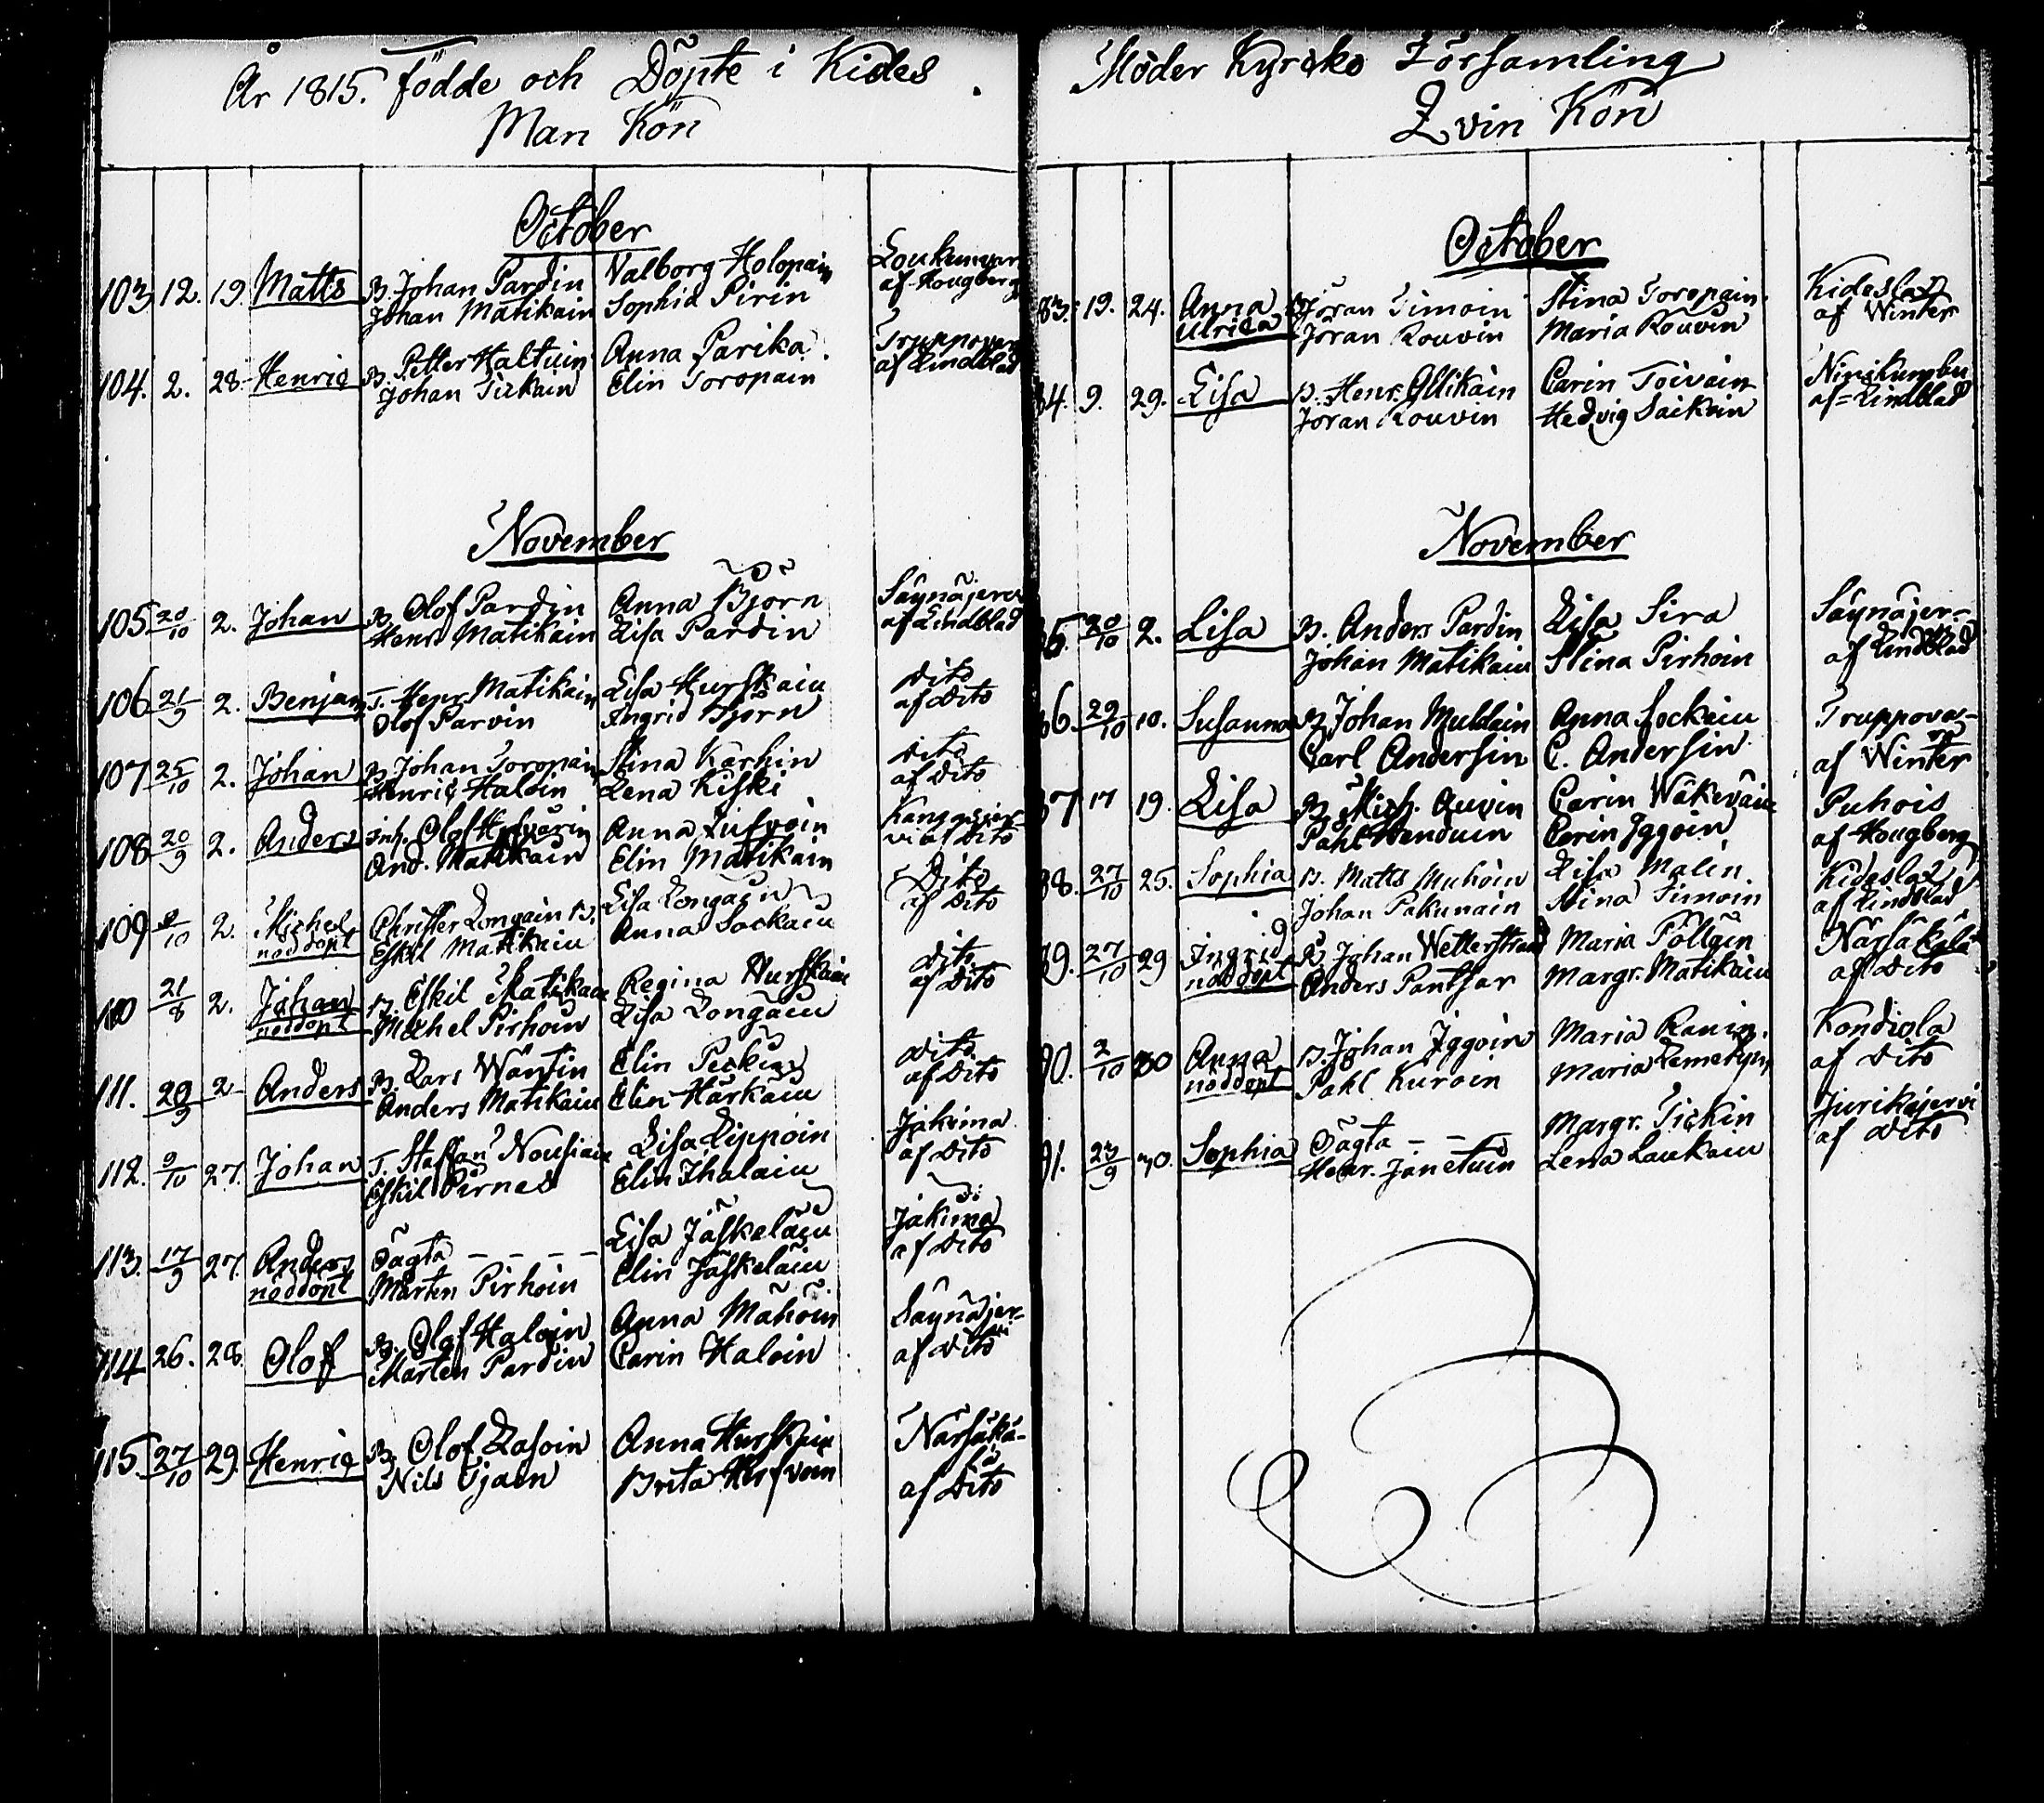 År 1815. Födde och Döpte i Kides
Man Kön
October
103. 12. 19. Matts B. Johan Pardin Valborg Holopain
Johan Matikain Sophia Pirin af Hougberg
104. 2. 28. Henric B. Petter Haltuin Anna Parika
Johan Tickain Elin Toropain af Lindblad
November
105 20/10 2. Johan B. Olof Pardin Anna Björn Säynäjerv
Henr. Matikain Lisa Pardin af Lindblad
106 21/9 2. Benjam T. Henr. Matikain Lisa Hurskain dito
Olof Parvin Ingrid Björn af dito
107 25/10 2. Johan B. Johan Toropain Stina Karhin dito
Henric Haloin Lena Kiski af dito
108 20/9 2. Anders inh. Olof Anna
And. Matikain Elin Matikain vi af dito
109 2. Michel Christer Longain B. Lisa Longain Dito
nöddöpt Eskil Matikain Anna Sockain af Dito
110 21/8 2. Johan B. Eskil Matikain Regina Hurskain dito
nöddöpt Michel Pirhoin Lisa Longain af Dito
111. 2 Anders B. Lars Wäntin Elin dito
Anders Matikain Elin Härkäin af Dito
112. 9/10 27. Johan T. Staffan Nousiain Lisa Lippoin
Eskil Pirnes Elin Ihalain af Dito
113. 17/9 27. Anders Oägta - - - - Lisa Jäskeläin
nöddöpt Mårten Pirhoin Elin Jäskeläin af Dito
114 26. 28. Olof B. Olof Haloin Anna Mähöin Säynäjer-
Mårten Pardin Carin Haloin af dito
115. 27/10 29. Henric B. Olof Lasoin Anna Hurskain Närsäkä-
Nils Brita lä
af Dito
Moder Kyrcko Församling
Qvin Kön
October
83. 19. 24. Anna Jöran Timoin Stina Toropain Kideslax
Ulrica Jöran Rouvin Maria Rouvin af Winter
84. 9. 29. Lisa B. Henr. Ollikain Carin Toivain Ninikumbu
Jöran Rouvin Hedvig Saikoin af Lindblad
November
85. 20/10 2. Lisa B. Anders Pardin Lisa Sira Säynäjer-
Johan Matikain Stina Pirhoin af Lindblad
86. 29/10 10. Susanna B. Johan Muldain Anna Sockain Truppova-
Carl Andersin C. Andersin ra
af Winter
87 17 19. Lisa B. Mich. Auvin Carin Wäkeväin Puhois
Påhl Carin Iggoin af Hougberg
88. 27/10 25. Sophia B. Matts Muhoin Lisa Malin Kideslax
Johan Pakunain Stina Timoin af Lindblad
89. 27/10 29 Ingrid B. Johan Wetterstrand Maria Pölläin Närsäkälä
nöddöpt Anders Pantsar Margr. Matikain af dito
90. 2/10 30 Anna B. Johan Iggoin Maria Ranin Kondiola
nöddöpt Påhl Kuroin Maria af dito
91. 23/9 30. Sophia Oägta - - - Margr. Tickin Jurikajervi
Henr. Janetuin Lena Laukain af dito